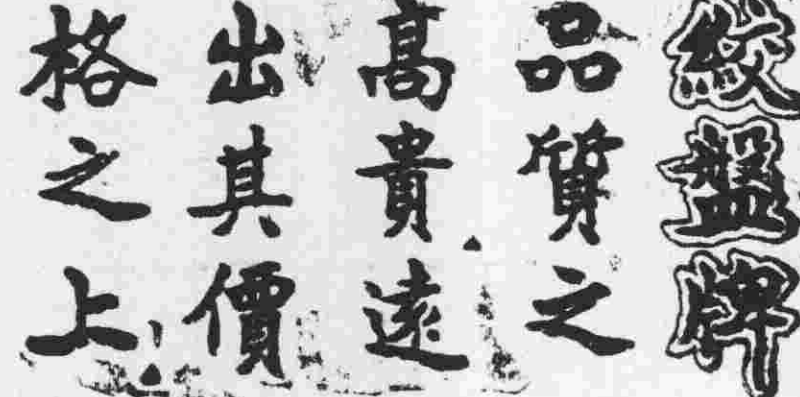 絞盤牌
品質之
高貴遠
出其價
格之上